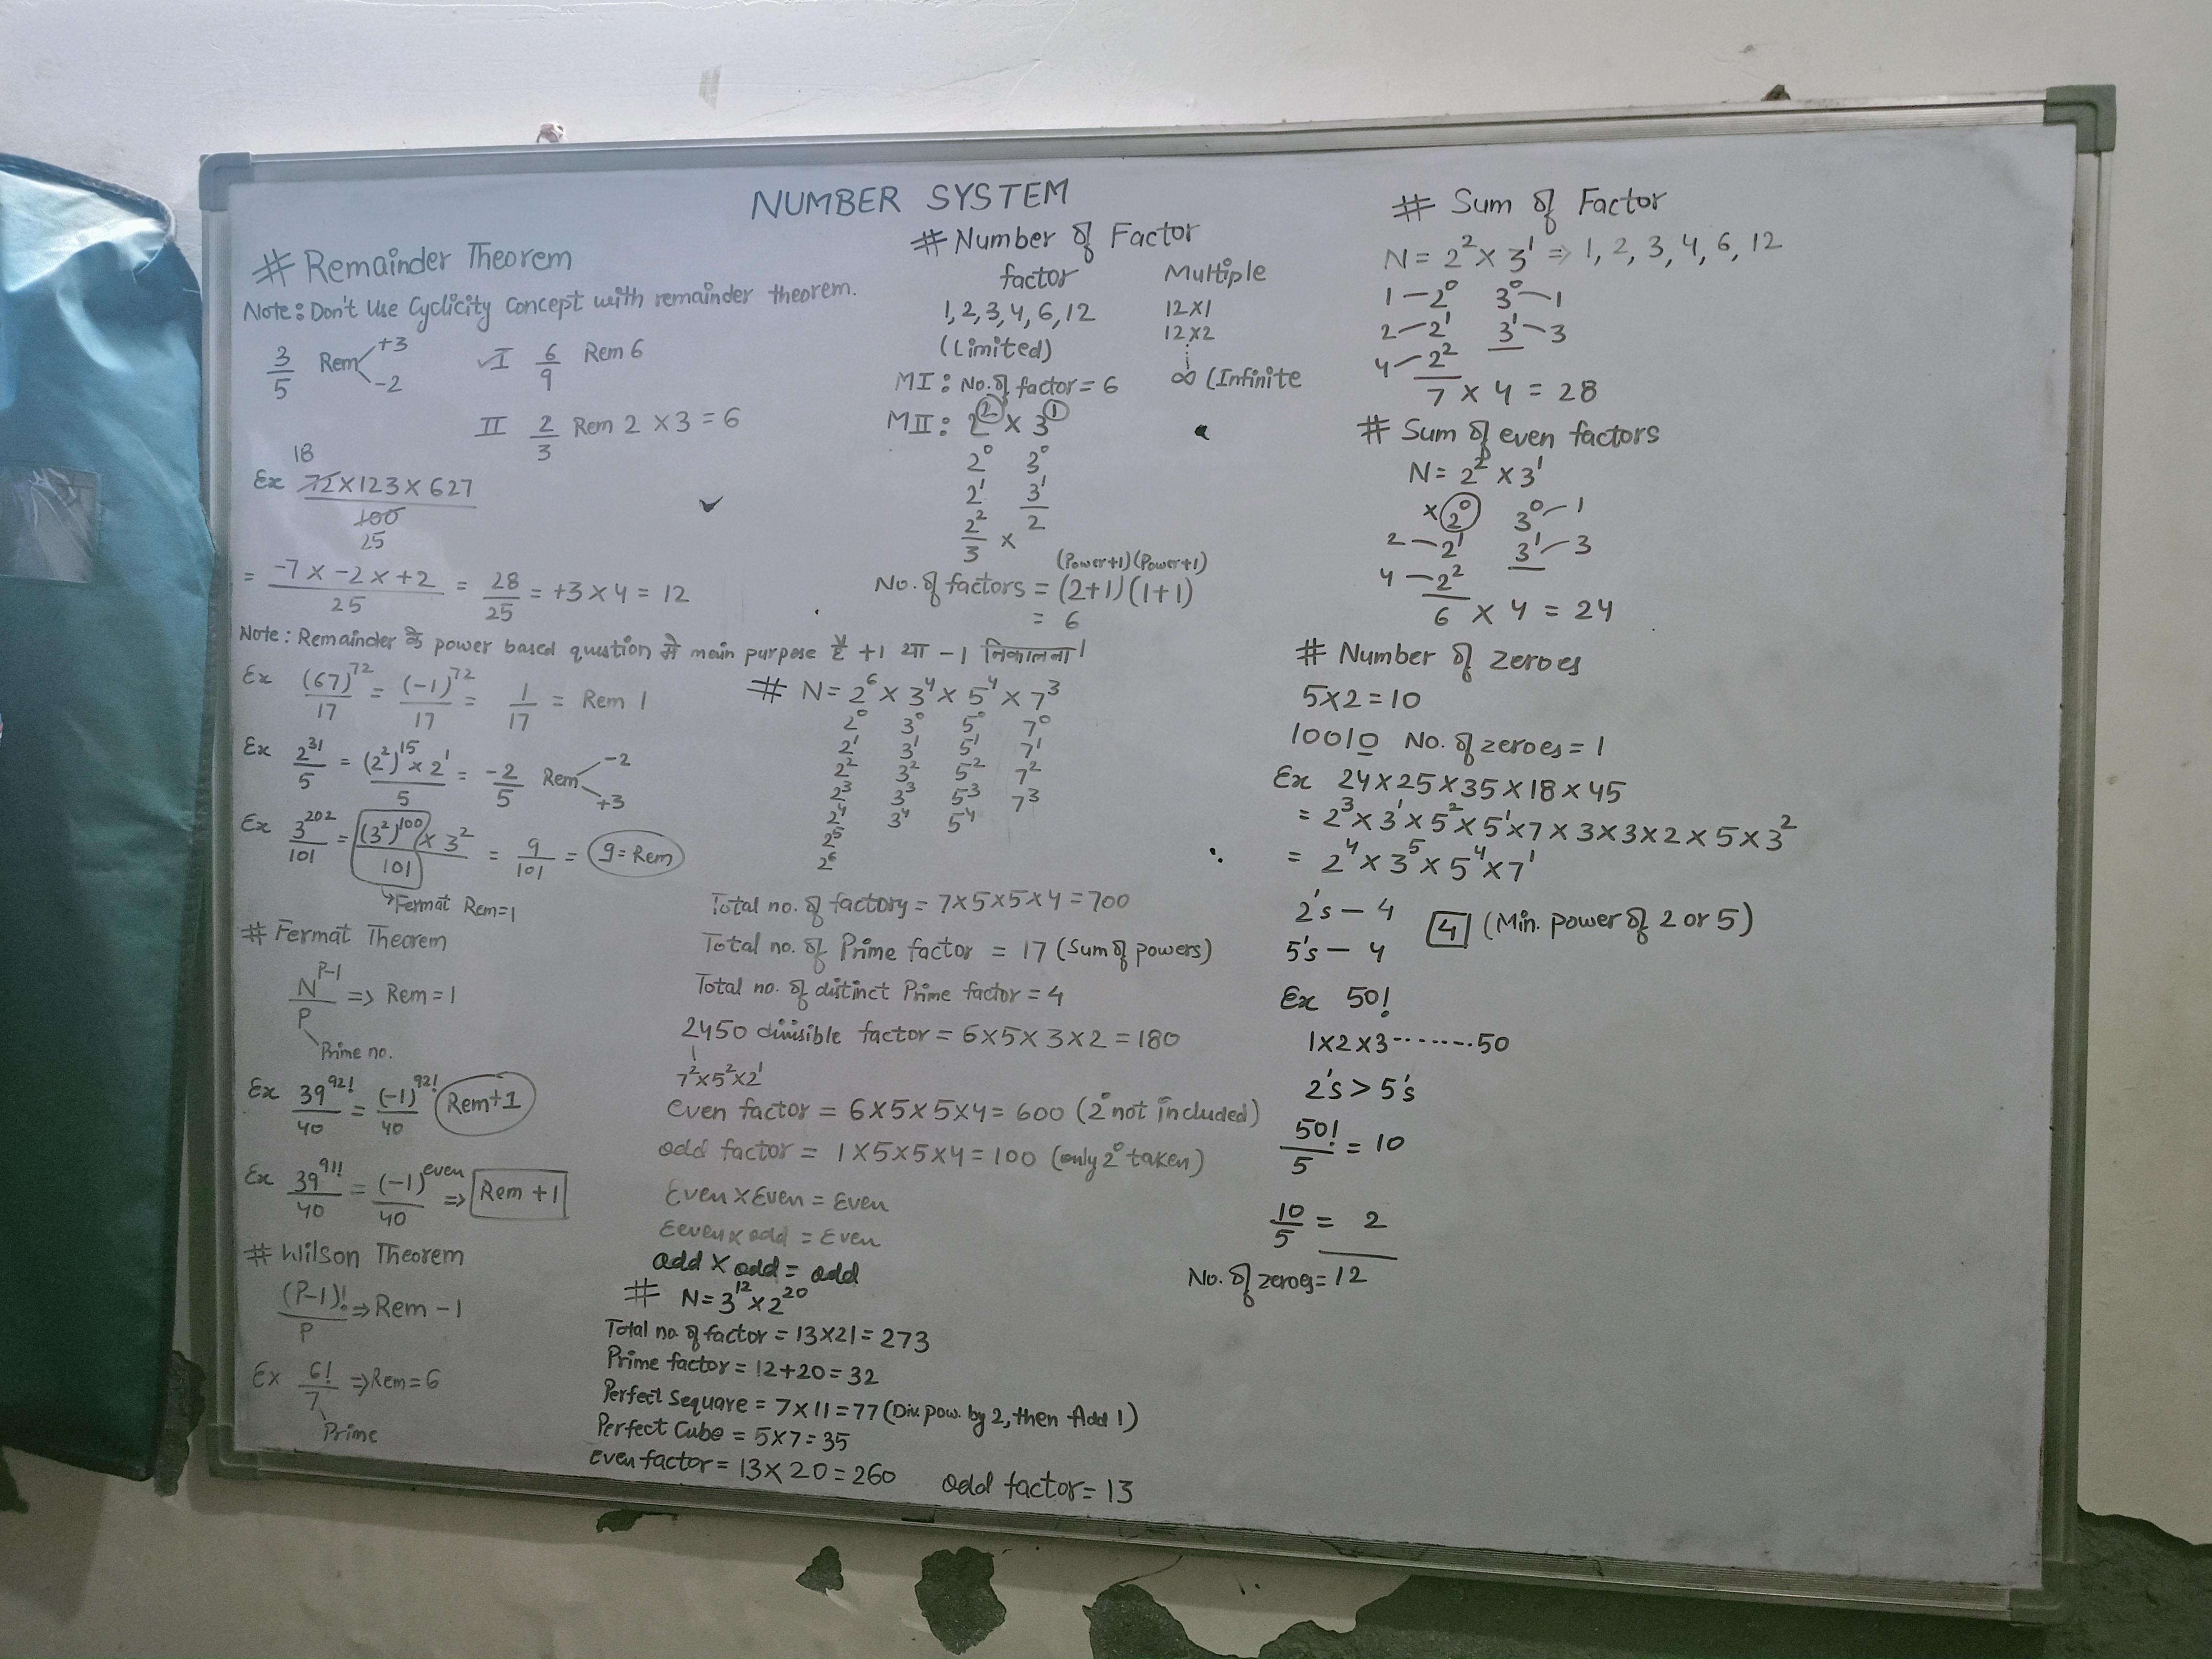 NUMBER SYSTEM
# Remainder Theorem
Note: Don't Use Cyclicity Concept with remainder theorem.
3/5 Rem +3 -2
✓I 6/9 Rem 6
II 2/3 Rem 2 × 3 = 6
18
Ex 72×123×627
100
25
= -7 × -2 × +2 / 25 = 28/25 = +3 × 4 = 12
Note: Remainder के power based quustion मे main purpose है +1 या -1 निकालना।
Ex (67)^72/17 = (-1)^72/17 = 1/17 = Rem 1
Ex 2^31/5 = (2^2)^15 × 2^1/5 = -2/5 Rem -2 +3
Ex 3^202/101 = (3^2)^100 × 3^2/101 = 9/101 = 9=Rem
→Fermat Rem=1
# Fermat Theorem
N^P-1/P => Rem=1
Prime no.
Ex 39^92!/40 = (-1)^92!/40 Rem+1
Ex 39^91!/40 = (-1)^even/40 => Rem +1
# Wilson Theorem
(P-1)!/P => Rem -1
Ex 6!/7 => Rem=6
Prime
# Number of Factor
factor Multiple
1,2,3,4,6,12 12×1
12×2
(Limited)
∞ (Infinite
MI: No. of factor = 6
MII: 2^2 × 3^1
2^0 3^0
2^1 3^1
2^2 2
3 ×
(Power+1)(Power+1)
No. of factors = (2+1)(1+1)
= 6
# N= 2^6 × 3^4 × 5^4 × 7^3
2^0 3^0 5^0 7^0
2^1 3^1 5^1 7^1
2^2 3^2 5^2 7^2
2^3 3^3 5^3 7^3
2^4 3^4 5^4
2^5
2^6
Total no. of factory = 7×5×5×4=700
Total no. of Prime factor = 17 (Sum of powers)
Total no. of distinct Prime factor = 4
2450 divisible factor = 6×5×3×2=180
7^2×5^2×2^1
even factor = 6×5×5×4= 600 (2^0 not included)
odd factor = 1×5×5×4=100 (only 2^0 taken)
Even×Even = Even
Eeven×odd = Even
odd × odd = odd
# N=3^12×2^20
Total no. of factor = 13×21=273
Prime factor = 12+20=32
Perfect Sequare = 7×11=77 (Div. pow. by 2, then Add 1)
Perfect Cube = 5×7=35
Even factor = 13×20=260 odd factor= 13
# Sum of Factor
N= 2^2 × 3^1 => 1, 2, 3, 4, 6, 12
1 — 2^0 3^0 — 1
2 — 2^1 3^1 — 3
4 — 2^2
7 × 4 = 28
# Sum of even factors
N= 2^2 × 3^1
× 2^0 3^0 — 1
2 — 2^1 3^1 — 3
4 — 2^2
6 × 4 = 24
# Number of zeroes
5×2=10
10010 No. of zeroes = 1
Ex 24×25×35×18×45
= 2^3×3^1×5^2×5^1×7×3×3×2×5×3^2
= 2^4×3^5×5^4×7^1
2's — 4
5's — 4
4 (Min. power of 2 or 5)
Ex 50!
1×2×3.......50
2's > 5's
50!/5 = 10
10/5 = 2
No. of zeroes= 12